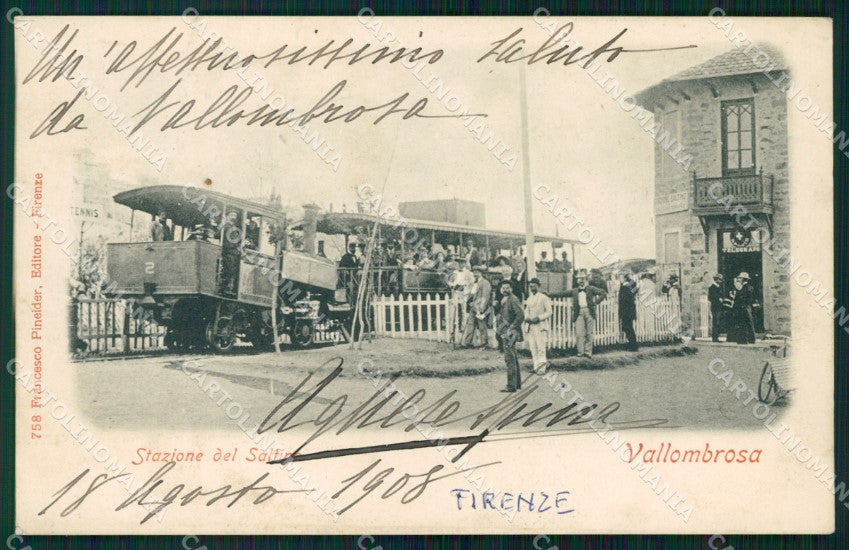 Un' affettuosissimo saluto
da Vallombrosa
TENNIS
758 Francesco Pineider, Editore - Firenze
Agnese
Stazione del Saltino
Vallombrosa
18 Agosto 1908
FIRENZE
CARTOLINOMANIA